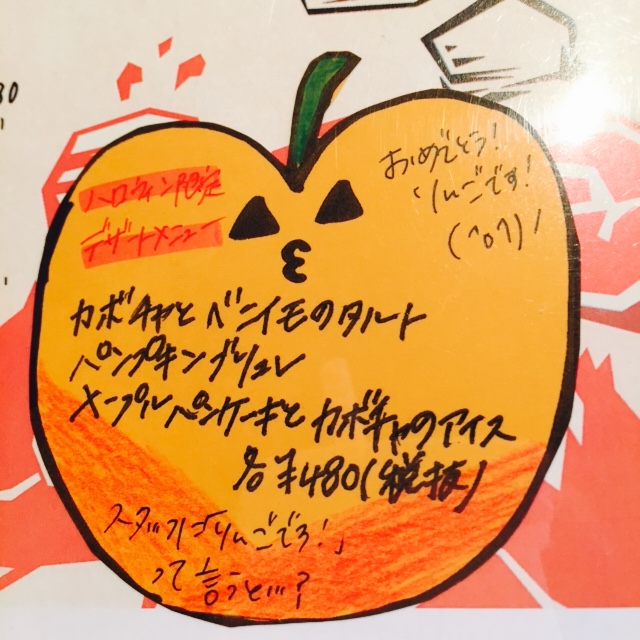 ハロウィン限定
デザートメニュー
おめでとう!
りんごです!
(^o^)ノ
カボチャとベニイモのタルト
パンプキンブリュレ
メープルパンケーキとカボチャのアイス
各¥480(税抜)
スタッフに「りんごでろ!」
って言うと…?